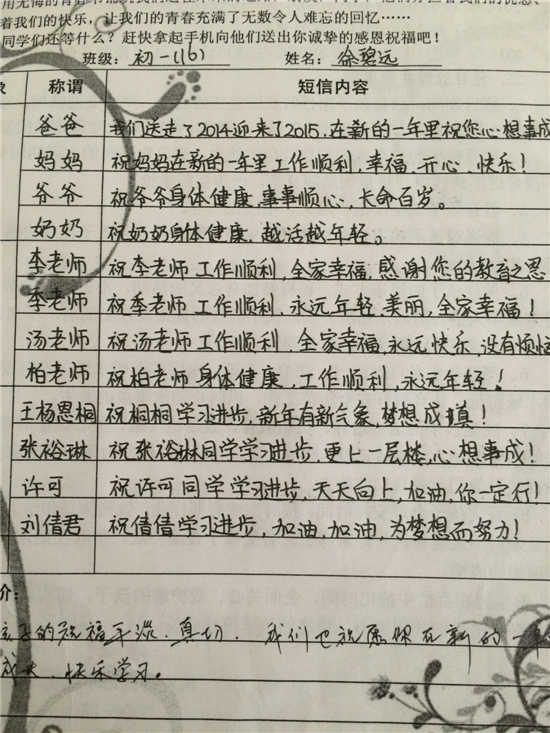 着我们的快乐,让我们的青春充满了无数令人难忘的回忆……
同学们还等什么?赶快拿起手机向他们送出你诚挚的感恩祝福吧!
班级:初一(16) 姓名:徐碧远
称谓 短信内容
爸爸 我们送走了2014迎来了2015,在新的一年里祝您心想事成
妈妈 祝妈妈在新的一年里工作顺利,幸福、开心、快乐!
爷爷 祝爷爷身体健康,事事顺心,长命百岁。
奶奶 祝奶奶身体健康,越活越年轻。
李老师 祝李老师工作顺利,全家幸福,感谢您的教育之恩
季老师 祝季老师工作顺利,永远年轻,美丽,全家幸福!
汤老师 祝汤老师工作顺利,全家幸福,永远快乐,没有烦恼
柏老师 祝柏老师身体健康,工作顺利,永远年轻!
王杨恩桐 祝桐桐学习进步,新年有新气象,梦想成真!
张裕琳 祝张裕琳同学学习进步,更上一层楼,心想事成!
许可 祝许可同学学习进步,天天向上,加油,你一定行!
刘倩君 祝倩倩学习进步,加油,加油,为梦想而努力!
价:
子的祝福平淡、真切. 我们也祝愿你在新的一年
成长、快乐学习。